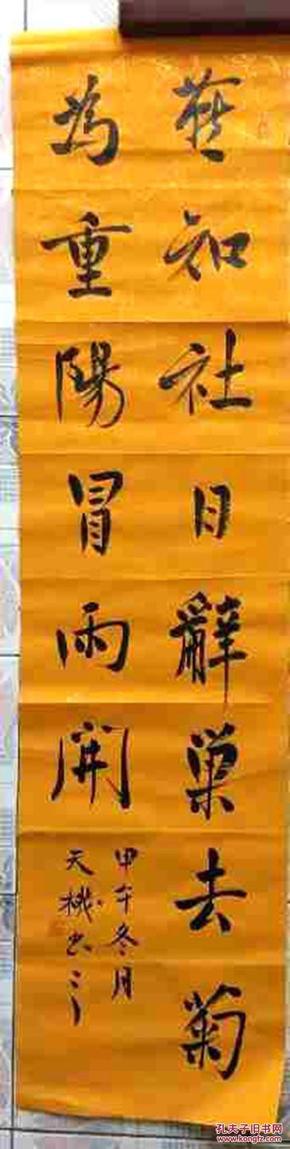 燕知社日辭巢去菊
為重陽冒雨開
甲午冬月
天
孔夫子旧书网